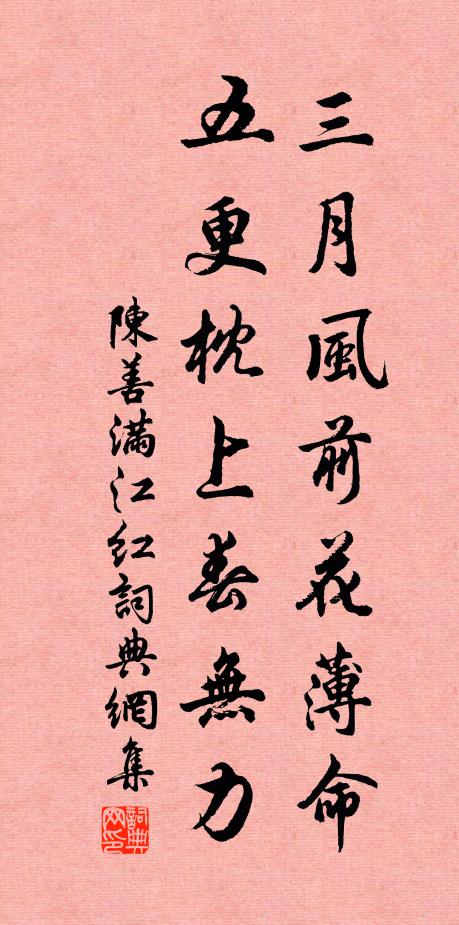 三月風前花薄命
五更枕上春無力
陳善滿江红詞典網集
詞典网印